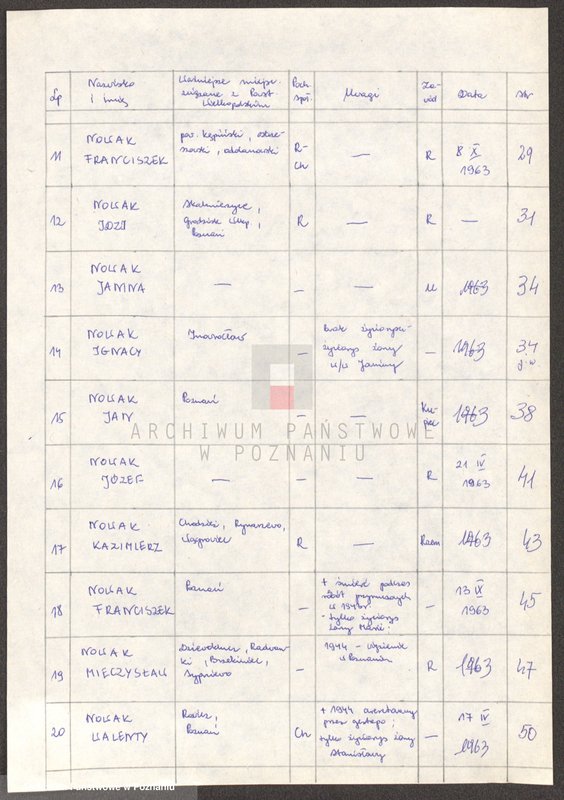 Lp
Nazwisko
i imię
Ważniejsze miejsc.
związane z Powst.
Wielkopolskim
Poch.
społ.
Uwagi
Za-
wód
Data
Str
11
NOWAK
FRANCISZEK
pow. Kępiński, ostrze-
szowski, odolanowski
R-
Ch
—
R
8 X
1963
29
12
NOWAK
JÓZEF
Skalmierzyce,
Grodzisk Wlkp,
Poznań
R
—
R
—
31
13
NOWAK
JANINA
—
–
—
1963
34
14
NOWAK
IGNACY
Inowrocław
–
brak życiorysu
życiorys żony
w/w Janiny
–
1963
34
j.w
15
NOWAK
JAN
Poznań
–
—
Ku-
piec
1963
38
16
NOWAK
JÓZEF
—
–
—
R
21 IV
1963
41
17
NOWAK
KAZIMIERZ
Chodzież, Rynarzewo,
Wągrowiec
R
—
Rzem
1963
43
18
NOWAK
FRANCISZEK
Poznań
–
+ śmierć podczas
robót przymusowych
w 194
- tylko życiorys
żony Marii.
–
13 IX
1963
45
19
NOWAK
MIECZYSŁAW
–
1944 – więzienie
w Poznaniu
R
1963
47
20
NOWAK
WALENTY
Poznań
Ch
+ 1944 aresztowany
przez gestapo;
tylko życiorys żony
Stanisławy
–
17 IV
1963
50
ARCHIWUM PAŃSTWOWE
W POZNANIU
Państwowe w Poznaniu